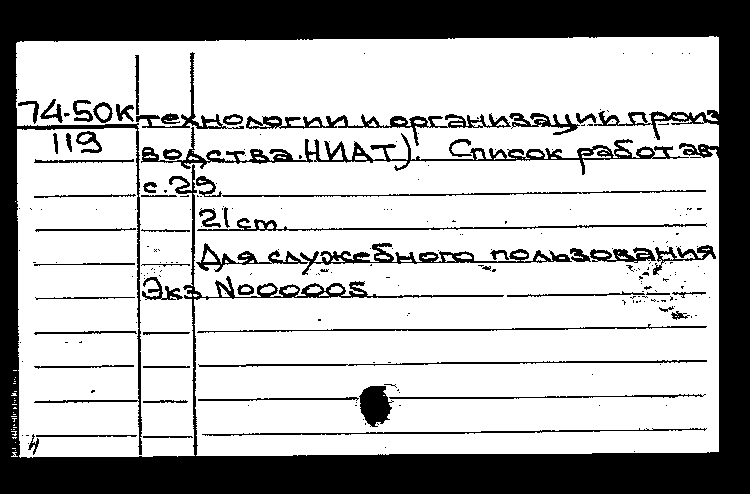 74-50к технологии и организации произ
119 водства.НИАТ). Список работ авт
с.29.
21 cm.
Для служебного пользования
Экз. N000005.